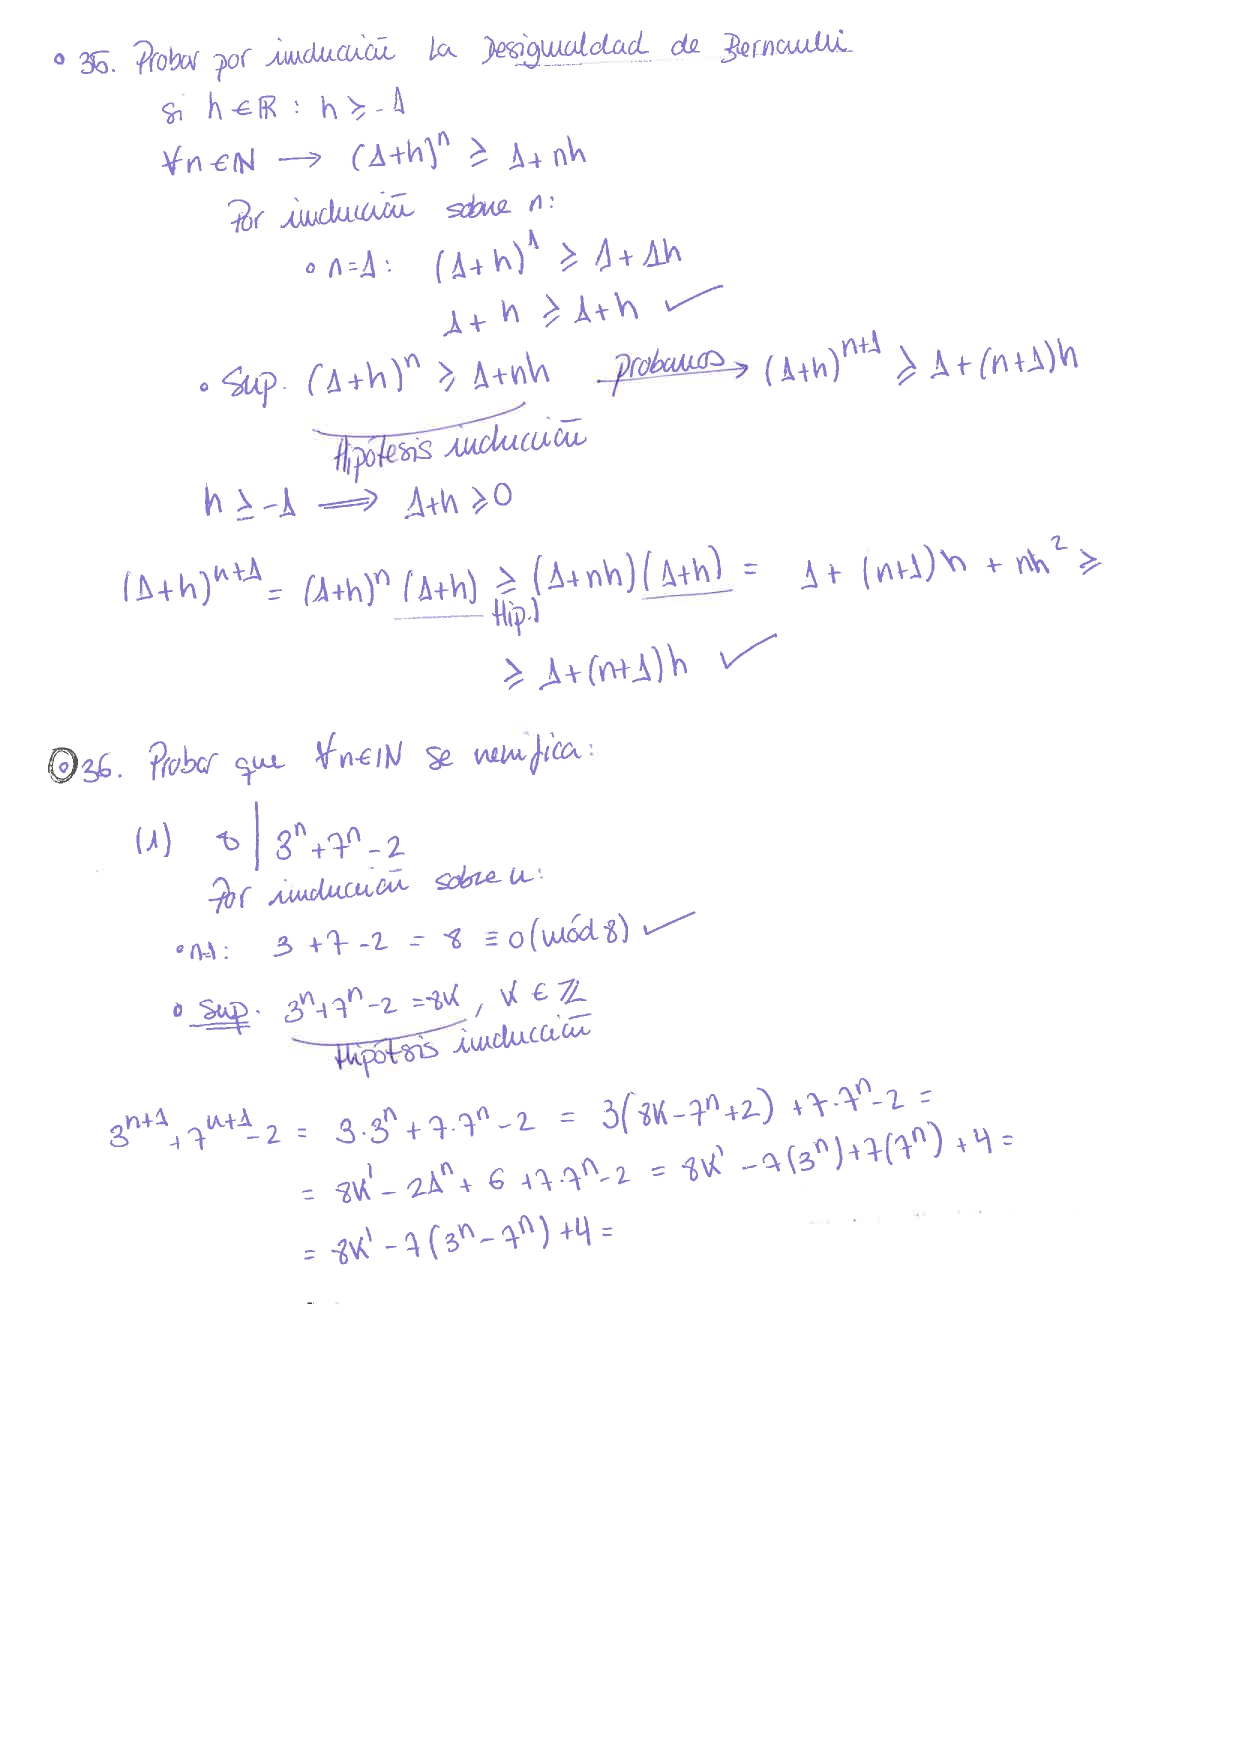 35. Probar por inducción la Desigualdad de Bernaulli
si h ∈ ℝ : h ≥ -1
∀n ∈ ℕ ⟶ (1+h)^n ≥ 1+nh
Por inducción sobre n:
• n=1: (1+h)^1 ≥ 1+1h
1+h ≥ 1+h ✓
• Sup. (1+h)^n ≥ 1+nh probamos→ (1+h)^{n+1} ≥ 1+(n+1)h
Hipótesis inducción
h ≥ -1 ⟹ 1+h ≥ 0
(1+h)^{n+1} = (1+h)^n (1+h) ≥ (1+nh)(1+h) = 1 + (n+1)h + nh^2 ≥
Hip.)
≥ 1+(n+1)h ✓
36. Probar que ∀n∈ℕ se verifica:
(1) 8 | 3^n + 7^n - 2
Por inducción sobre n:
• n=1: 3 + 7 - 2 = 8 ≡ 0 (mód 8) ✓
• Sup. 3^n + 7^n - 2 = 8k, k ∈ ℤ
Hipótsis inducción
3^{n+1} + 7^{n+1} - 2 = 3·3^n + 7·7^n - 2 = 3(8k - 7^n + 2) + 7·7^n - 2 =
= 8k' - 21^n + 6 + 7·7^n - 2 = 8k' - 7(3^n) + 7(7^n) + 4 =
= 8k' - 7(3^n - 7^n) + 4 =